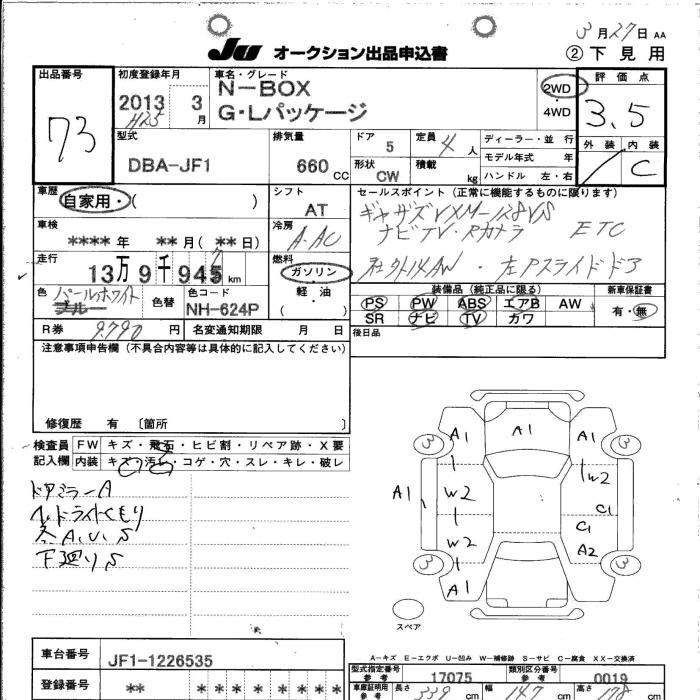 3月27日 AA
JU オークション出品申込書 ② 下見用
出品番号 73
初度登録年月 2013 3月 H25
車名・グレード N-BOX
G・Lパッケージ
2WD・4WD
評価点 3.5
外装 / 内装 C
型式 DBA-JF1
排気量 660 CC
ドア 5 定員 4人
形状 CW 積載 kg
ディーラー・並行
モデル年式 年
ハンドル 左・右
車歴 自家用・( )
シフト AT
セールスポイント(正常に機能するものに限ります)
ナビTV・Rカメラ ETC
社外14AW・左Pスライドドア
車検 **** 年 **月(**日)
冷房 A・AC
走行 13万9千945km
燃料 ガソリン・軽・油・( )
色 パールホワイト ブルー
色替
色コード NH-624P
装備品(純正品に限る)
PS PW ABS エアB AW
SR ナビ TV カワ
新車保証書 有・無
R券 9,790円
名変通知期限 月 日
後日品
注意事項申告欄(不具合内容等は具体的に記入してください)
修復歴 有〔箇所 〕
検査員記入欄
FW キズ・飛石・ヒビ割・リペア跡・X要
内装 キズ・汚れ・コゲ・穴・スレ・キレ・破レ
ドアミラーA
ヘッドライトくもり
各A,U,S
下廻りS
A1 A1 A1
3 3
W2
A1 W2 C1
C1
W2 A2
3 3
A1
スペア
A-キズ E-エクボ U-凹み W-補修跡 S-サビ C-腐食 XX-交換済
車台番号 JF1-1226535
型式指定番号 参考 17075
類別区分番号 参考 0019
登録番号 ** * * * * * * * *
車庫証明用 参考 長さ 339 cm 幅 147 cm 高さ 178 cm